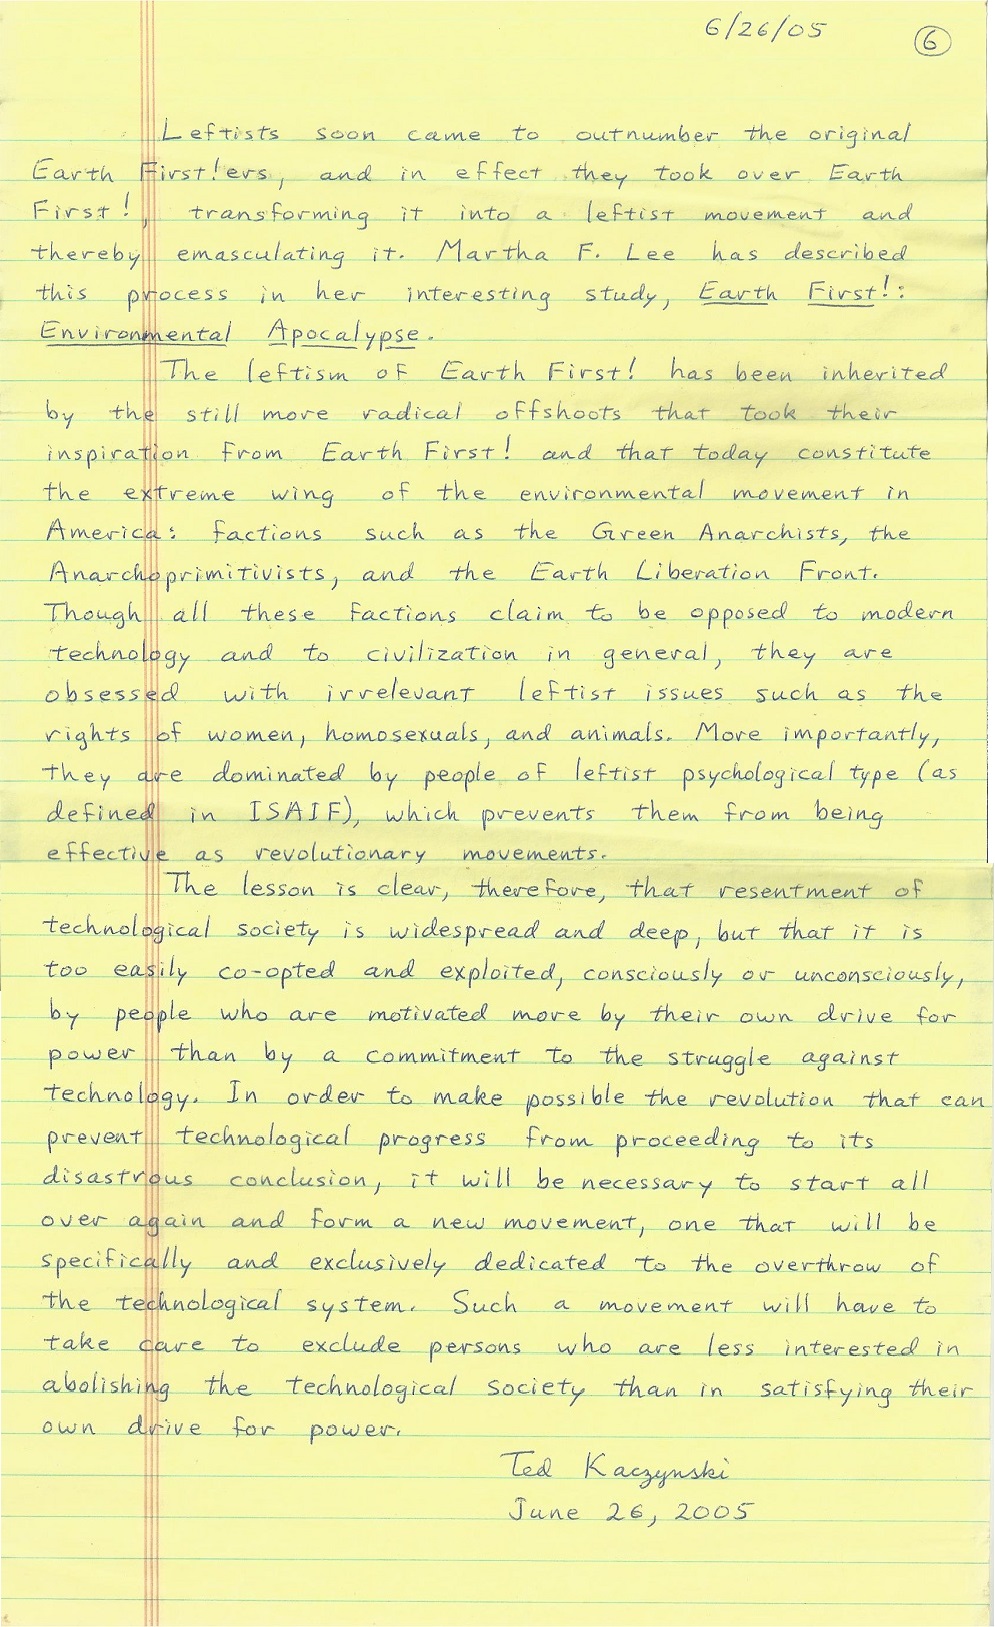 6/26/05
6
Leftists soon came to outnumber the original
Earth First!ers, and in effect they took over Earth
First!, transforming it into a leftist movement and
thereby emasculating it. Martha F. Lee has described
this process in her interesting study, Earth First!:
Environmental Apocalypse.
The leftism of Earth First! has been inherited
by the still more radical offshoots that took their
inspiration from Earth First! and that today constitute
the extreme wing of the environmental movement in
America: factions such as the Green Anarchists, the
Anarchoprimitivists, and the Earth Liberation Front.
Though all these factions claim to be opposed to modern
technology and to civilization in general, they are
obsessed with irrelevant leftist issues such as the
rights of women, homosexuals, and animals. More importantly,
they are dominated by people of leftist psychological type (as
defined in ISAIF), which prevents them from being
effective as revolutionary movements.
The lesson is clear, therefore, that resentment of
technological society is widespread and deep, but that it is
too easily co-opted and exploited, consciously or unconsciously,
by people who are motivated more by their own drive for
power than by a commitment to the struggle against
technology. In order to make possible the revolution that can
prevent technological progress from proceeding to its
disastrous conclusion, it will be necessary to start all
over again and form a new movement, one that will be
specifically and exclusively dedicated to the overthrow of
the technological system. Such a movement will have to
take care to exclude persons who are less interested in
abolishing the technological society than in satisfying their
own drive for power.
Ted Kaczynski
June 26, 2005